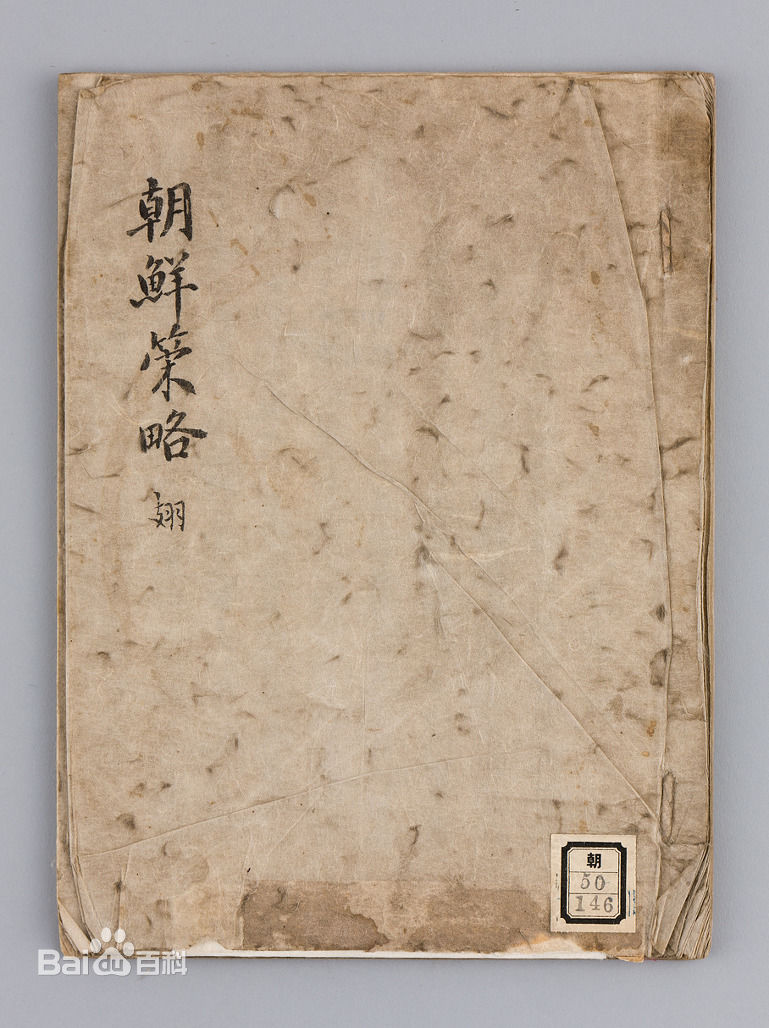 朝鮮策略
朝
50
146
Bai百科